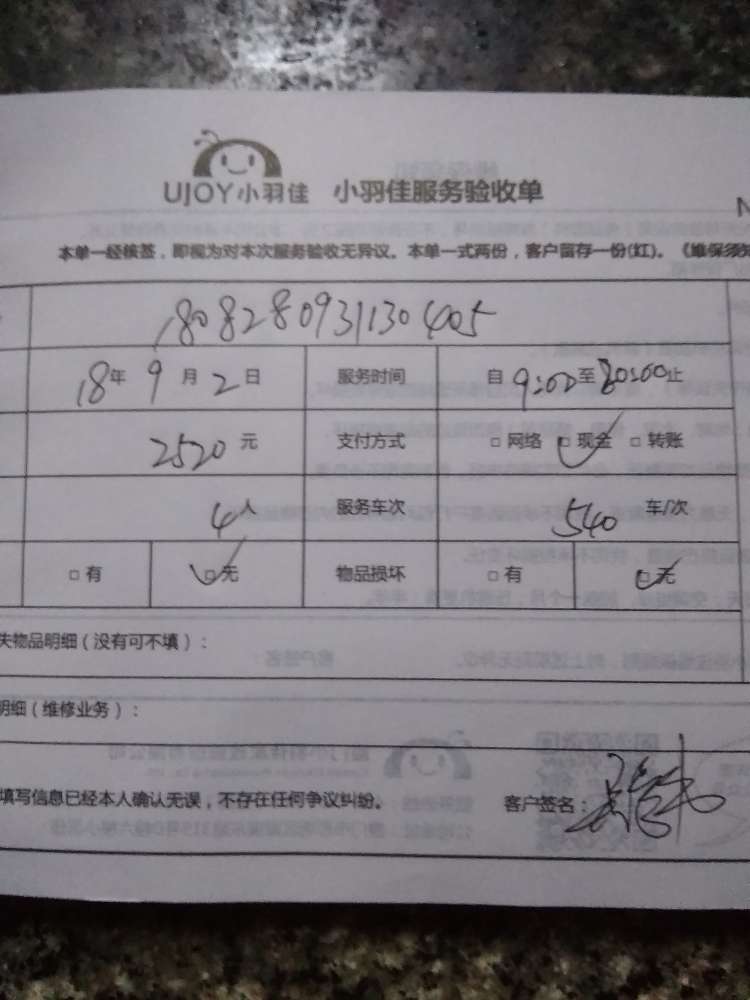 UJOY小羽佳 小羽佳服务验收单
本单一经核签，即视为对本次服务验收无异议。本单一式两份，客户留存一份(红)。《维保须知
1808280931130405
18年9月2日 服务时间 自9:00至20:00止
2520元 支付方式 □网络 □现金 □转账
4人 服务车次 540 车/次
□有 □无 物品损坏 □有 □无
失物品明细（没有可不填）：
明细（维修业务）：
填写信息已经本人确认无误，不存在任何争议纠纷。 客户签名：